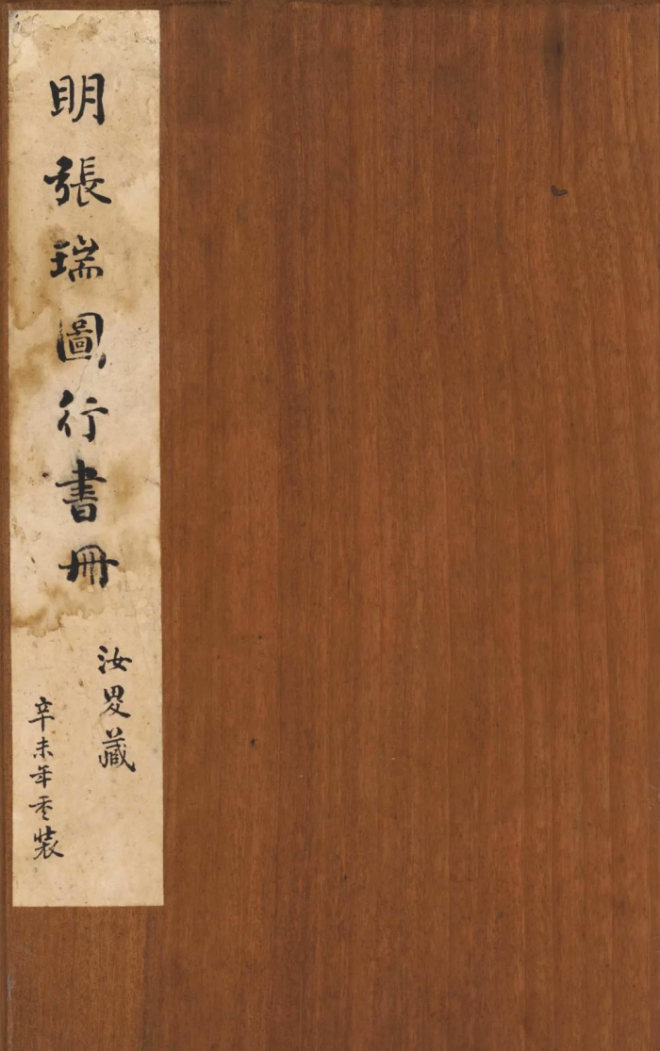 明張瑞圖行書冊
汝㚇藏
辛未年重裝